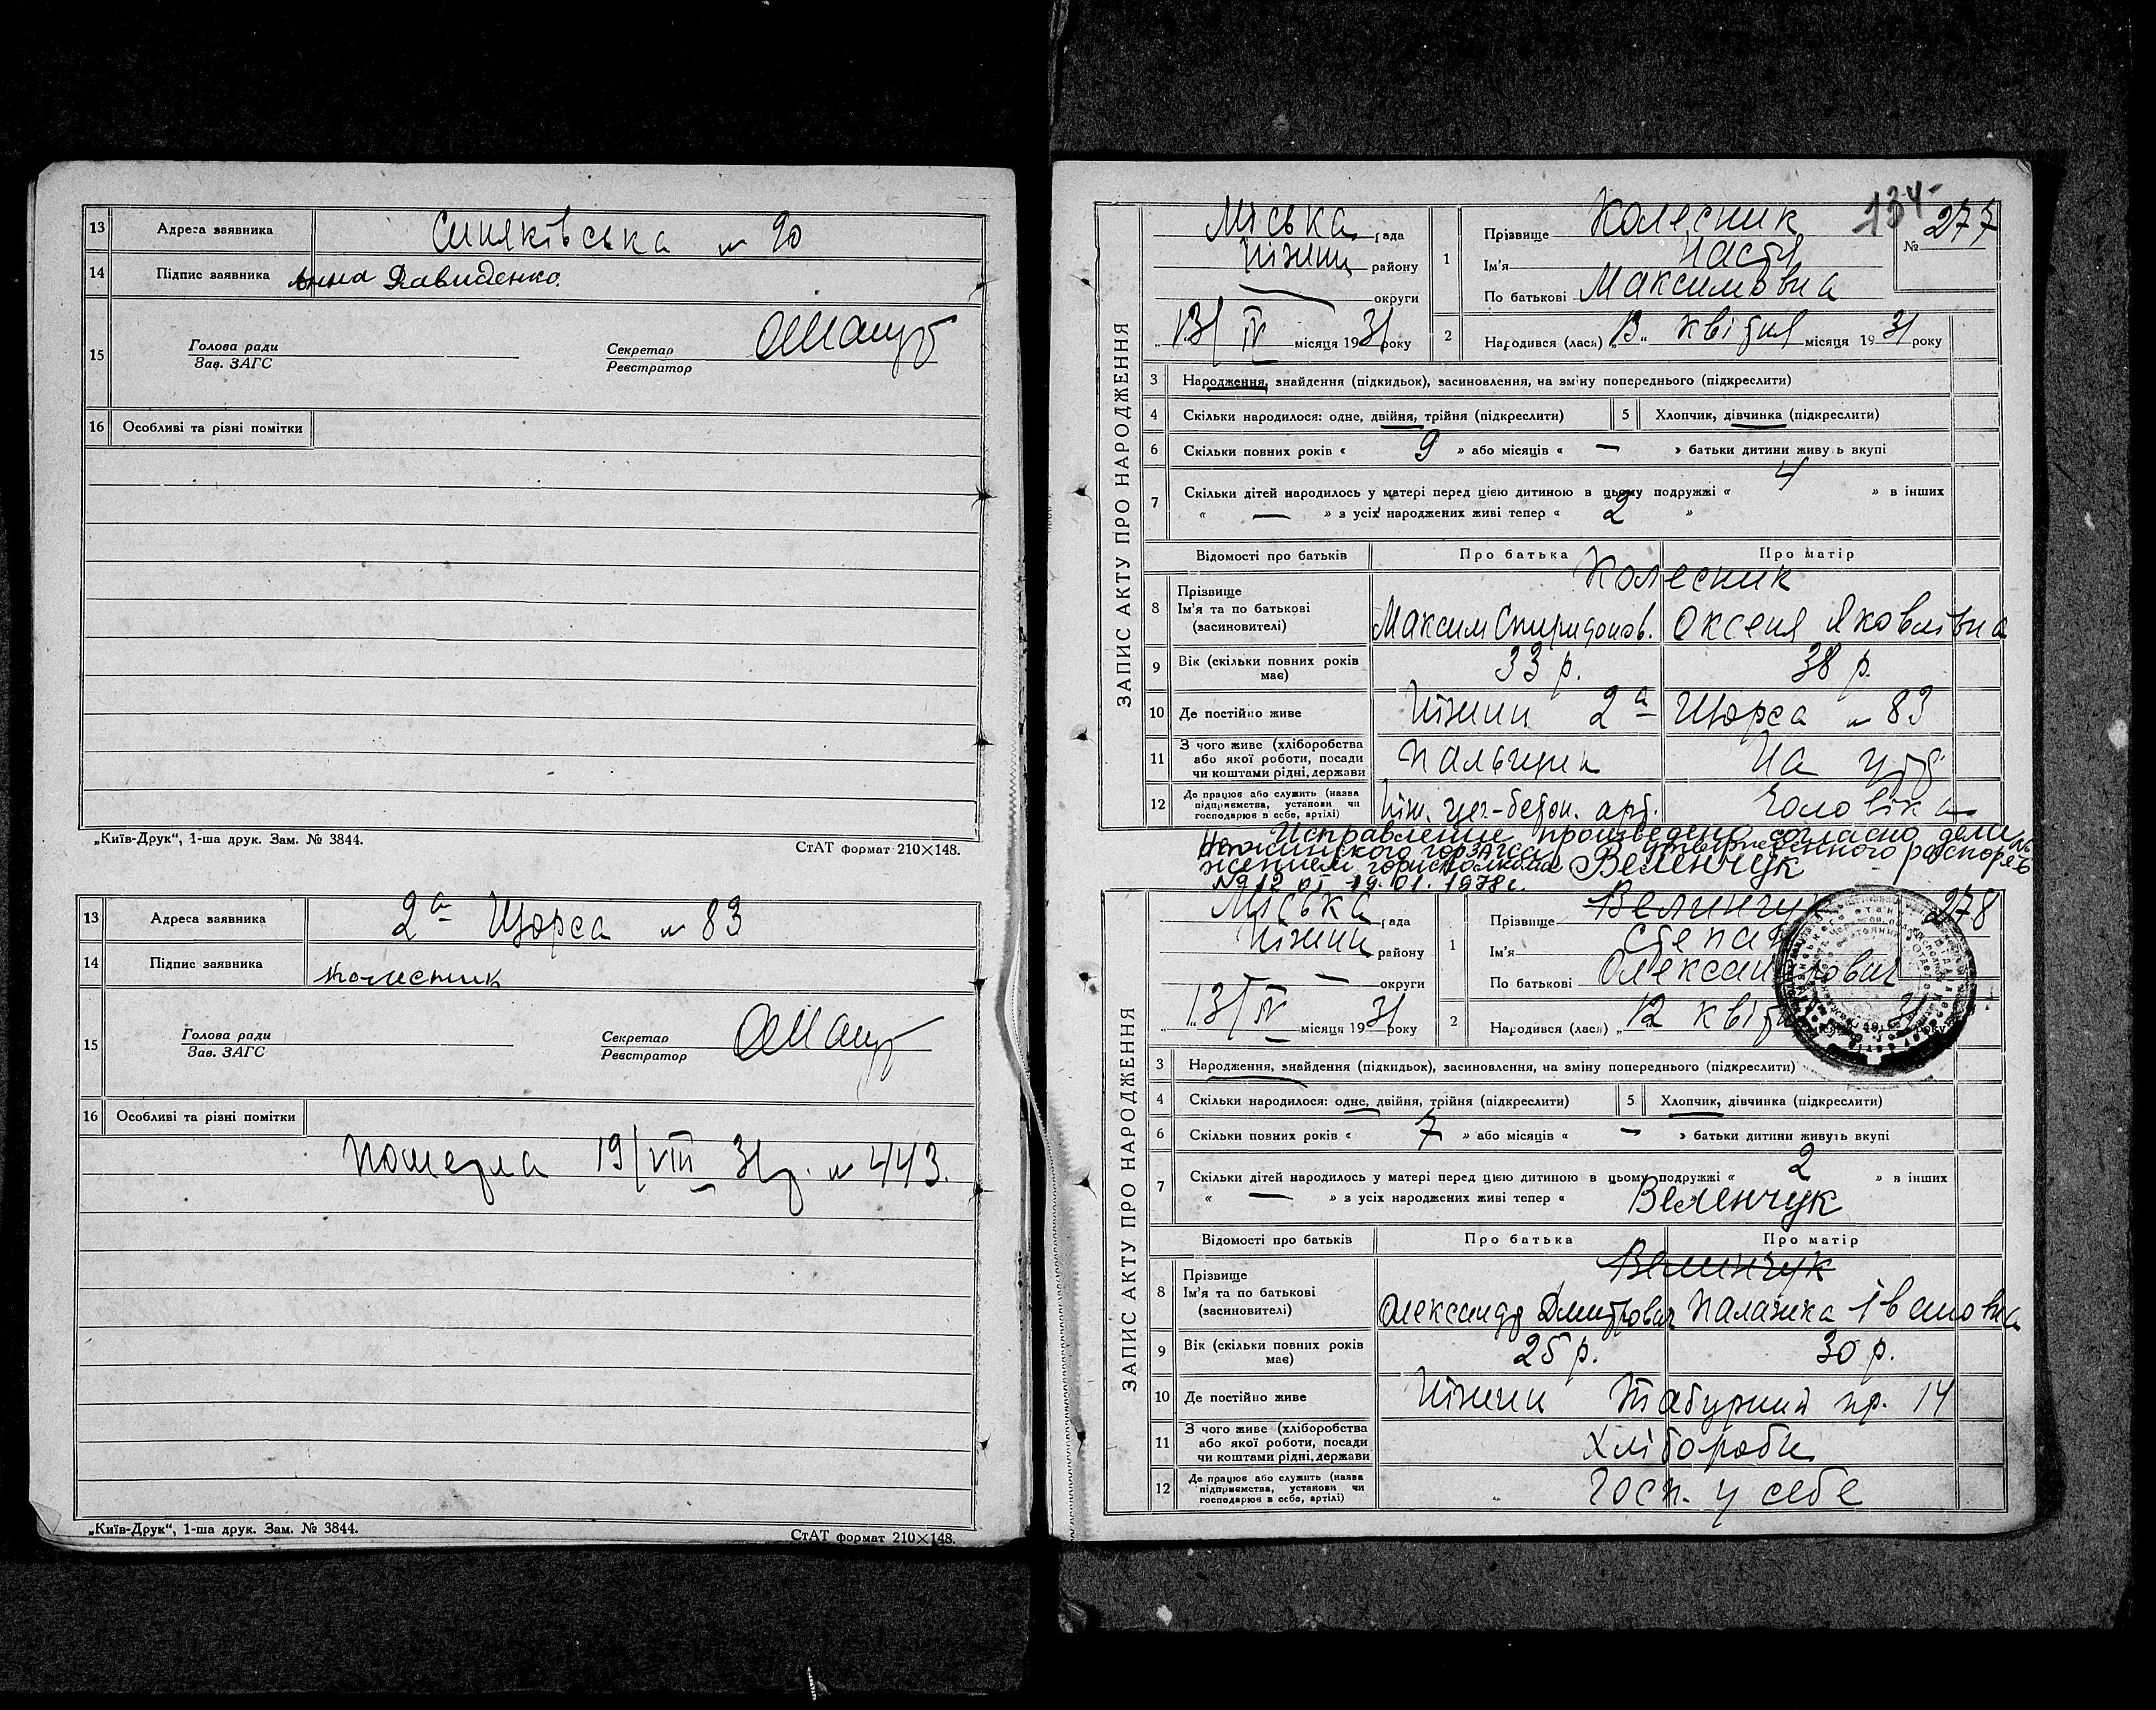 13 Адреса заявника Синяківська № 20
14 Підпис заявника Анна Давиденко.
15 Голова ради
Зав. ЗАГС
Секретар
Реєстратор
16 Особливі та різні помітки
„Київ-Друк“, 1-ша друк. Зам. № 3844.
СтАТ формат 210×148.
13 Адреса заявника 2а Щорса № 83
14 Підпис заявника Колесник
15 Голова ради
Зав. ЗАГС
Секретар
Реєстратор
16 Особливі та різні помітки
Померла 19/VIII 31р. № 443.
„Київ-Друк“, 1-ша друк. Зам. № 3844.
СтАТ формат 210×148.
134
ЗАПИС АКТУ ПРО НАРОДЖЕННЯ
Міська рада
Ніжин району
— округи
„13/ IV місяця 1931 року
1 Прізвище Колесник
Ім'я Настя
По батькові Максимовна
№ 277
2 Народився (лася) „13„ квітня місяця 1931 року
3 Народження, знайдення (підкидьок), засиновлення, на зміну попереднього (підкреслити)
4 Скільки народилося: одне, двійня, трійня (підкреслити) 5 Хлопчик, дівчинка (підкреслити)
6 Скільки повних років « 9 » або місяців « — » батьки дитини живуть вкупі
7 Скільки дітей народилось у матері перед цією дитиною в цьому подружжі « 4 » в інших
« — » з усіх народжених живі тепер « 2 »
Відомості про батьків Про батька Про матір
Колесник
8 Прізвище
Ім'я та по батькові
(засиновителі)
Максим Спиридонов. Оксеня Яковлівна
9 Вік (скільки повних років має) 33 р. 38 р.
10 Де постійно живе Ніжин 2а Щорса № 83
11 З чого живе (хліборобства
або якої роботи, посади
чи коштами рідні, держави
На утр.
12 Де працює або служить (назва
підприємства, установи чи
господарює в себе, артілі)
Ніж. цег-бетон. арт. чоловіка
Исправление произведено согласно дела
Нежинского горЗАГСа утвержденного распоря-
жением горисполкома Веленчук
№ 12 от 19.01.1978 г.
ЗАПИС АКТУ ПРО НАРОДЖЕННЯ
Міська рада
Ніжин району
— округи
„13/ IV місяця 1931 року
1 Прізвище Велинчук
Ім'я Степан
По батькові Олександрович
278
2 Народився (лася) „12 квітня 31 року
3 Народження, знайдення (підкидьок), засиновлення, на зміну попереднього (підкреслити)
4 Скільки народилося: одне, двійня, трійня (підкреслити) 5 Хлопчик, дівчинка (підкреслити)
6 Скільки повних років « 7 » або місяців « — » батьки дитини живуть вкупі
7 Скільки дітей народилось у матері перед цією дитиною в цьому подружжі « 2 » в інших
« — » з усіх народжених живі тепер «
Веленчук
Відомості про батьків Про батька Про матір
Велинчук
8 Прізвище
Ім'я та по батькові
(засиновителі)
Олександр Дмитрович Палажка Івановна
9 Вік (скільки повних років має) 25 р. 30 р.
10 Де постійно живе Ніжин Табурний пр. 14
11 З чого живе (хліборобства
або якої роботи, посади
чи коштами рідні, держави
Хлібороби
12 Де працює або служить (назва
підприємства, установи чи
господарює в себе, артілі)
Госп. у себе